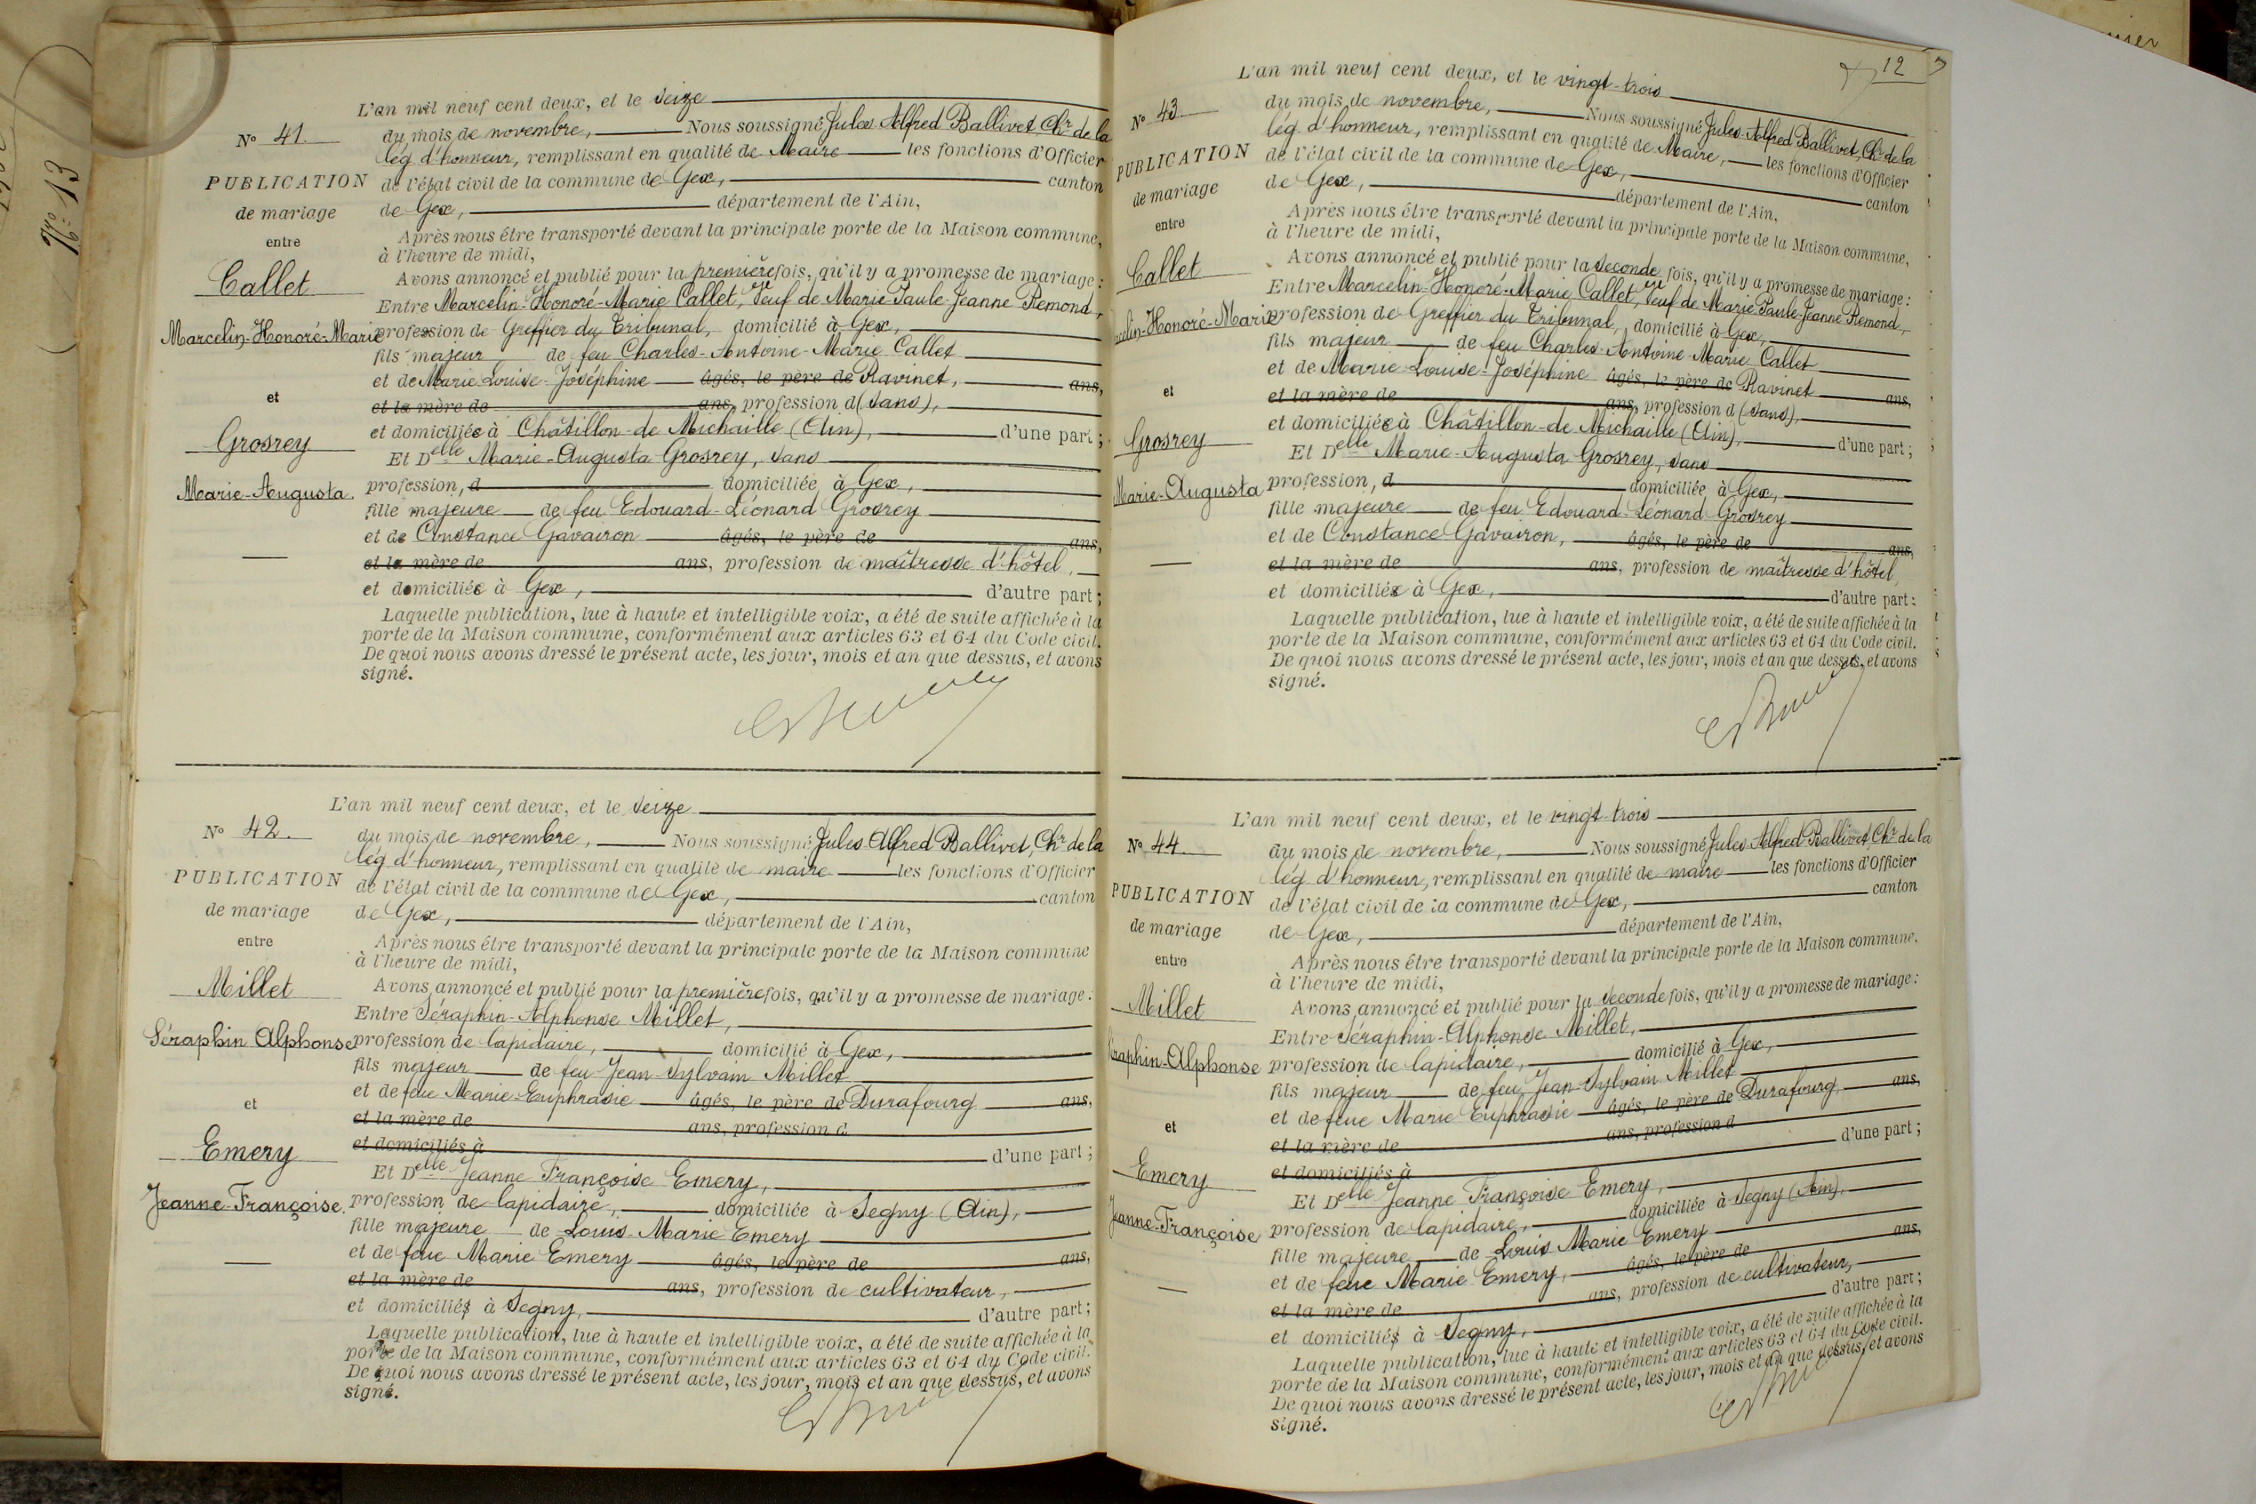 N° 13
N° 41.
PUBLICATION
de mariage
entre
Callet
Marcelin-Honoré-Marie
et
Grosrey
Marie-Augusta.
L'an mil neuf cent deux, et le seize
du mois de novembre, Nous soussigné Jules Alfred Ballivet, Chr de la
lég. d'honneur, remplissant en qualité de Maire les fonctions d'Officier
de l'état civil de la commune de Gex, canton
de Gex, département de l'Ain,
Après nous être transporté devant la principale porte de la Maison commune,
à l'heure de midi,
Avons annoncé et publié pour la première fois, qu'il y a promesse de mariage :
Entre Marcelin-Honoré-Marie Callet, Veuf de Marie-Paule-Jeanne Remond,
profession de Greffier du Tribunal, domicilié à Gex,
fils majeur de feu Charles-Antoine-Marie Callet
et de Marie Louise-Joséphine âgés, le père de Ravinet, ans,
et la mère de ans, profession d (sans),
et domiciliée à Châtillon-de Michaille (Ain), d'une part ;
Et Delle Marie-Augusta Grosrey, sans
profession, d domiciliée à Gex,
fille majeure de feu Edouard-Léonard Grosrey
et de Constance Gavairon âgés, le père de ans,
et la mère de ans, profession de maîtresse d'hôtel,
et domiciliée à Gex, d'autre part ;
Laquelle publication, lue à haute et intelligible voix, a été de suite affichée à la
porte de la Maison commune, conformément aux articles 63 et 64 du Code civil.
De quoi nous avons dressé le présent acte, les jour, mois et an que dessus, et avons
signé.
N° 42.
PUBLICATION
de mariage
entre
Millet
Séraphin Alphonse
et
Emery
Jeanne-Françoise.
L'an mil neuf cent deux, et le seize
du mois de novembre, Nous soussigné Jules Alfred Ballivet, Chr de la
lég d'honneur, remplissant en qualité de maire les fonctions d'Officier
de l'état civil de la commune de Gex, canton
de Gex, département de l'Ain,
Après nous être transporté devant la principale porte de la Maison commune
à l'heure de midi,
Avons annoncé et publié pour la première fois, qu'il y a promesse de mariage :
Entre Séraphin-Alphonse Millet,
profession de lapidaire, domicilié à Gex,
fils majeur de feu Jean-Sylvain Millet
et de feue Marie-Euphrasie âgés, le père de Durafourg ans,
et la mère de ans, profession d
et domiciliés à d'une part ;
Et Delle Jeanne Françoise Emery,
profession de lapidaire, domiciliée à Segny (Ain),
fille majeure de Louis Marie Emery
et de feue Marie Emery âgés, le père de ans,
et la mère de ans, profession de cultivateur,
et domiciliés à Segny, d'autre part ;
Laquelle publication, lue à haute et intelligible voix, a été de suite affichée à la
porte de la Maison commune, conformément aux articles 63 et 64 du Code civil.
De quoi nous avons dressé le présent acte, les jour, mois et an que dessus, et avons
signé.
12
N° 43
PUBLICATION
de mariage
entre
Callet
elin-Honoré-Marie
et
Grosrey
Marie-Augusta
L'an mil neuf cent deux, et le vingt-trois
du mois de novembre, Nous soussigné Jules-Alfred Ballivet, Chr de la
lég. d'honneur, remplissant en qualité de Maire, les fonctions d'Officier
de l'état civil de la commune de Gex, canton
de Gex, département de l'Ain,
Après nous être transporté devant la principale porte de la Maison commune,
à l'heure de midi,
Avons annoncé et publié pour la seconde fois, qu'il y a promesse de mariage :
Entre Marcelin-Honoré-Marie Callet, Veuf de Marie-Paule-Jeanne Remond,
profession de Greffier du Tribunal, domicilié à Gex,
fils majeur de feu Charles-Antoine-Marie Callet
et de Marie-Louise-Joséphine âgés, le père de Ravinet ans,
et la mère de ans, profession d (sans),
et domiciliée à Châtillon-de Michaille (Ain), d'une part ;
Et Delle Marie-Augusta Grosrey, sans
profession, d domiciliée à Gex,
fille majeure de feu Edouard-Léonard Grosrey
et de Constance Gavairon, âgés, le père de ans,
et la mère de ans, profession de maîtresse d'hôtel,
et domiciliée à Gex, d'autre part :
Laquelle publication, lue à haute et intelligible voix, a été de suite affichée à la
porte de la Maison commune, conformément aux articles 63 et 64 du Code civil.
De quoi nous avons dressé le présent acte, les jour, mois et an que dessus, et avons
signé.
N° 44
PUBLICATION
de mariage
entre
Millet
raphin-Alphonse
et
Emery
Jeanne-Françoise
L'an mil neuf cent deux, et le vingt-trois
du mois de novembre, Nous soussigné Jules Alfred Ballivet, Chr de la
lég d'honneur, remplissant en qualité de maire les fonctions d'Officier
de l'état civil de la commune de Gex, canton
de Gex, département de l'Ain,
Après nous être transporté devant la principale porte de la Maison commune,
à l'heure de midi,
Avons annoncé et publié pour la seconde fois, qu'il y a promesse de mariage :
Entre Séraphin-Alphonse Millet,
profession de lapidaire, domicilié à Gex,
fils majeur de feu Jean-Sylvain Millet
et de feue Marie Euphrasie âgés, le père de Durafourg, ans,
et la mère de ans, profession d
et domiciliés à d'une part ;
Et Delle Jeanne Françoise Emery,
profession de lapidaire, domiciliée à Segny (Ain),
fille majeure de Louis Marie Emery
et de feue Marie Emery, âgés, le père de ans,
et la mère de ans, profession de cultivateur,
et domiciliés à Segny, d'autre part ;
Laquelle publication, lue à haute et intelligible voix, a été de suite affichée à la
porte de la Maison commune, conformément aux articles 63 et 64 du Code civil.
De quoi nous avons dressé le présent acte, les jour, mois et an que dessus, et avons
signé.